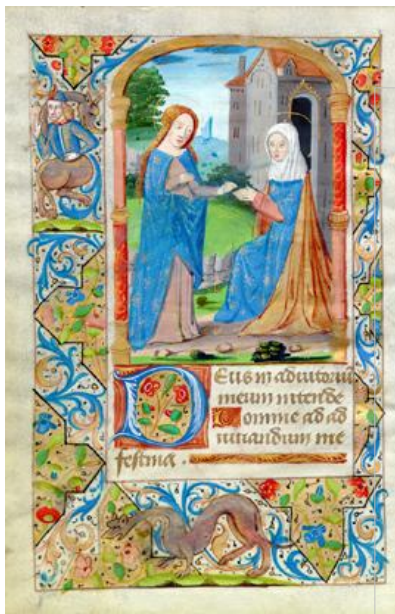 Deus in adiutoriū
meum intende
Domine ad ad
iuuandum me
festina .